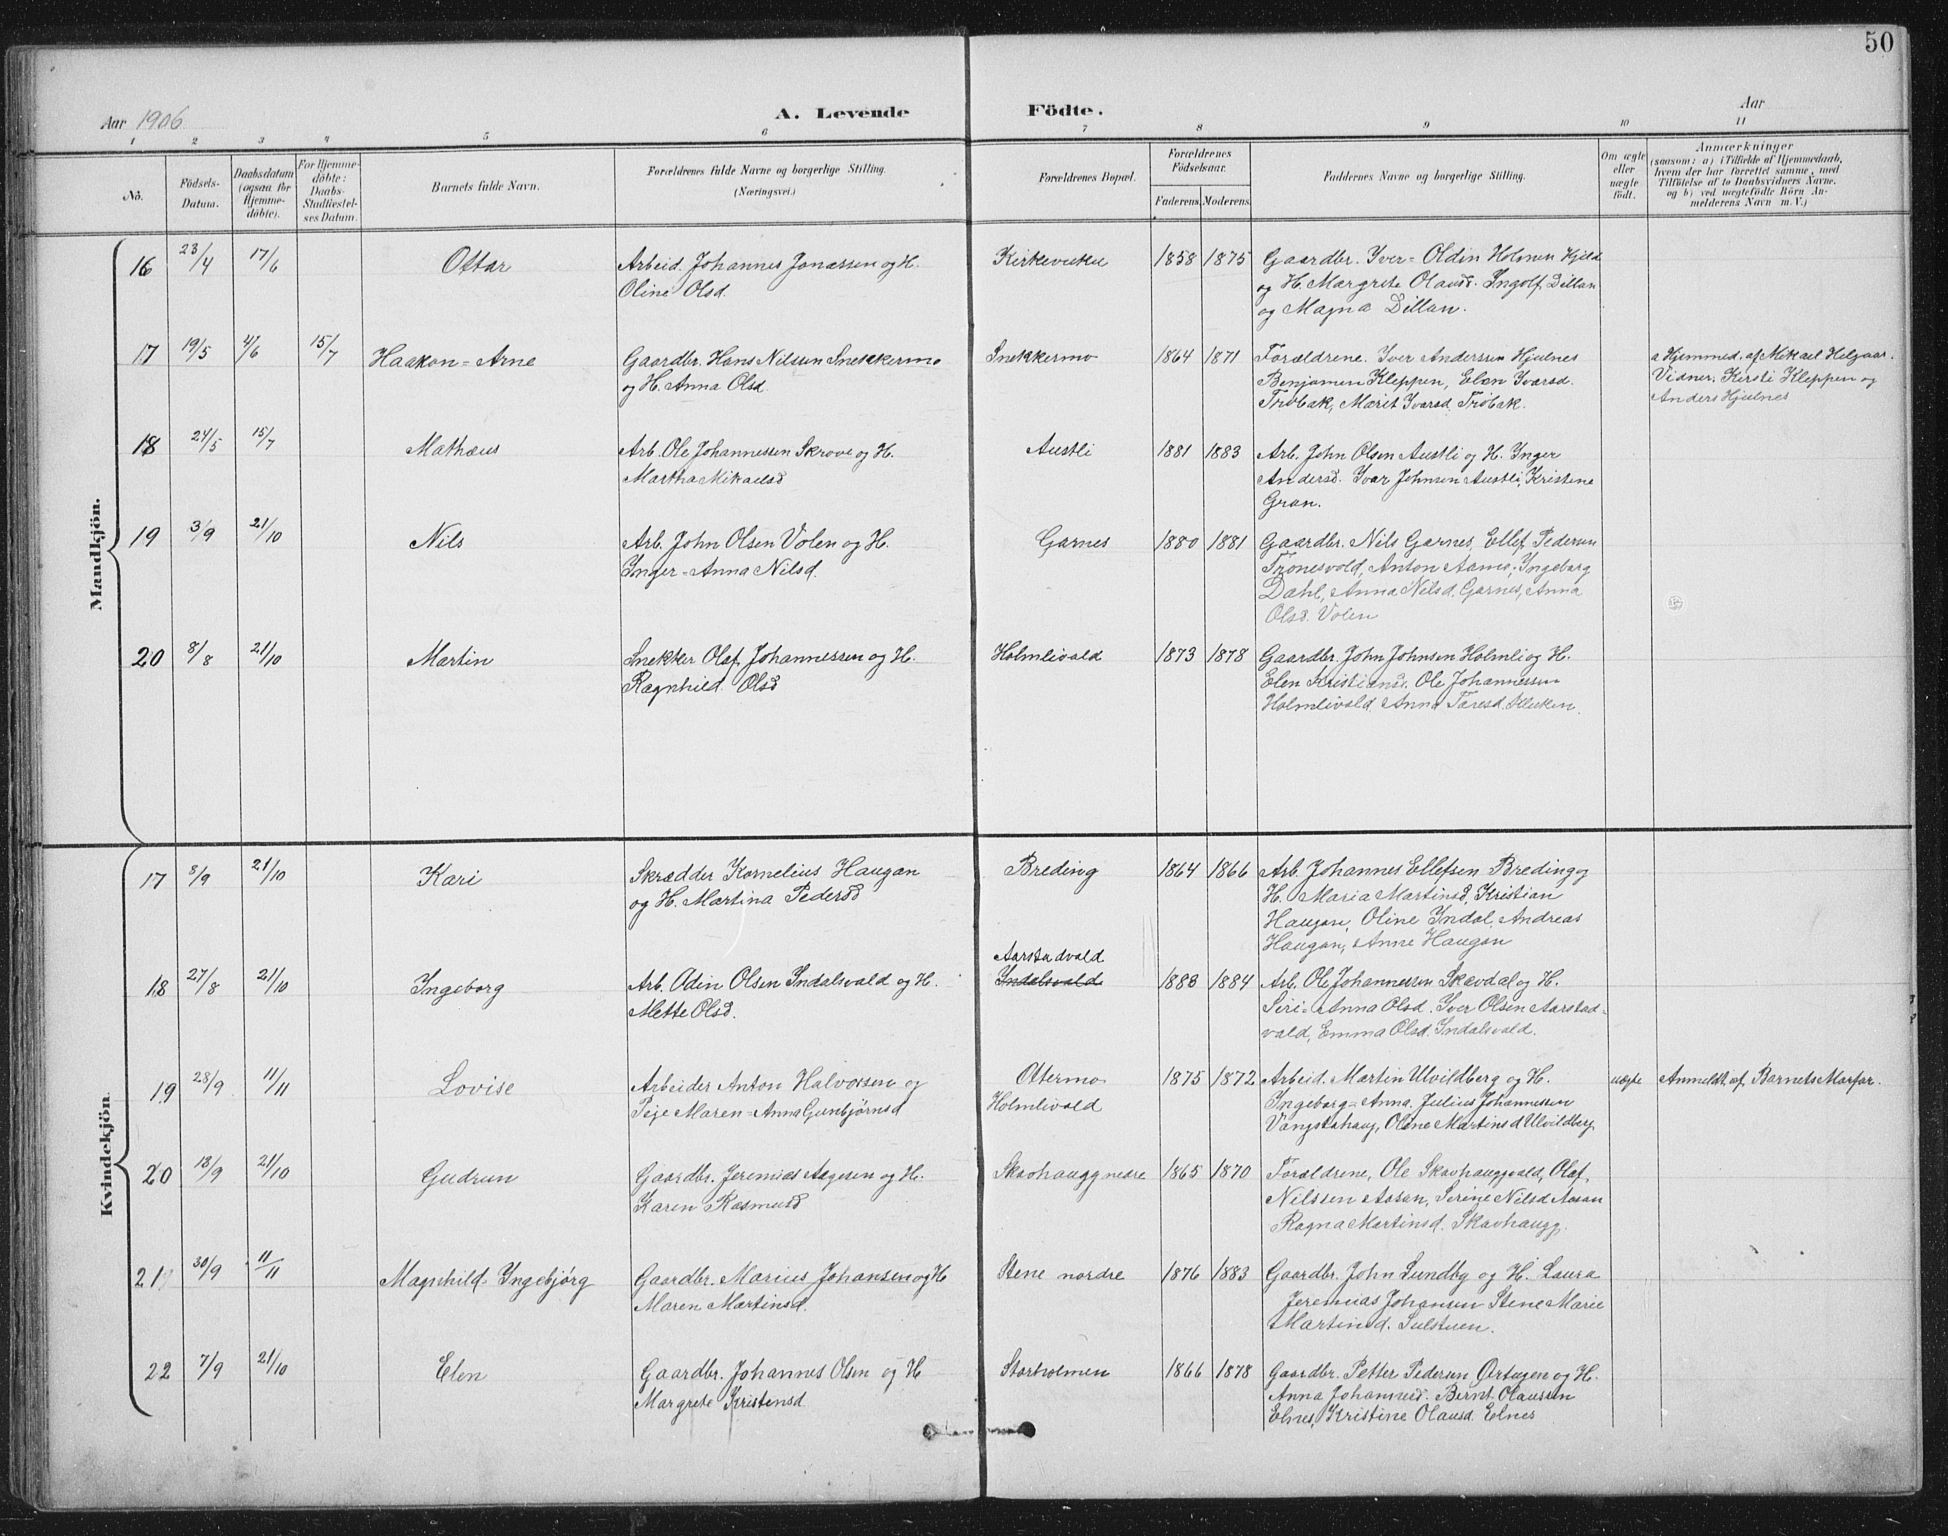 50
Aar 1906
A. Levende Födte.
Aar
1 2 3 4 5 6 7 8 9 10 11
No.
Födsels-Datum.
Daabsdatum (ogsaa for Hjemme-döbte).
For Hjemme-döbte: Daabs-Stadfæstel-ses Datum.
Barnets fulde Navn.
Forældrenes fulde Navne og borgerlige Stilling.
(Næringsvei.)
Forældrenes Bopæl.
Forældrenes Födselsaar.
Faderens. Moderens.
Faddernes Navne og borgerlige Stilling.
Om ægte eller uægte födt.
Anmærkninger
(saasom: a) i Tilfælde af Hjemmedaab,
hvem der har forrettet samme, med
Tilföielse af to Daabsvidners Navne.
og b) ved uægtefödte Börn An-
melderens Navn m. V.)
Mandkjön.
16 23/4 17/6 Ottar Arbeid. Johannes Jonassen og H. Kirkevukü 1858 1875 Gaardbr. Iver-Oldin Holmen Hjeld
Oline Olsd. og H. Margrete Olausd. Ingolf Dillan
og Magna Dillan.
17 19/5 4/6 15/7 Haakon-Arne Gaardbr. Hans Nilssen Snekkermo Snekkermo 1864 1871 Forældrene. Iver Anderssen Hjulnes a Hjemmed. af Mikael Helgaar.
og H. Anna Olsd Benjamen Kleppen, Elen Ivarsd. Vidner. Kirsti Kleppen og
Trøbak, Marit Ivarsd. Trøbak. Anders Hjulnes
18 24/5 15/7 Mathæus Arb. Ole Johannessen Skrove og H. Austli 1881 1883 Arb. John Olsen Austli og H. Inger
Martha Mikaelsd Andersd. Ivar Johnsen Austli, Kristine
Gran.
19 3/9 21/10 Nils Arb. John Olsen Volen og H. Garnes 1880 1881 Gaardbr. Nils Garnes, Ellef Pedersen
Inger-Anna Nilsd. Tronesvold, Anton Aamo, Ingeborg
Dahl, Anna Nilsd. Garnes, Anna
Olsd. Volen
20 8/8 21/10 Martin Snekker Olaf Johannessen og H. Holmlivald 1873 1878 Gaardbr. John Johnsen Holmli og H.
Ragnhild Olsd Elen Kristiansd. Ole Johannessen
Holmlivald. Anna Taresd.
Kvindekjön.
17 8/9 21/10 Kari Skrædder Kornelius Haugan Breding 1864 1866 Arb. Johannes Ellefsen Breding og
og H. Martina Pedersd H. Maria Martinsd, Kristian
Haugan, Oline Indal, Andreas
Haugan, Anne Haugan
Aarstadvald
18 27/8 21/10 Ingeborg Arb. Odin Olsen Indalsvald og H. Indalsvald 1883 1884 Arb. Ole Johannessen Skavdal og H.
Mette Olsd. Siri-Anna Olsd. Iver Olsen Aarstad-
vald, Emma Olsd. Indalsvald.
19 28/9 11/11 Lovise Arbeider Anton Halvorsen og Ottermo 1875 1872 Arbeid. Martin Ulvildberg og H. uægte Anmeldt af Barnets Morfar.
Pige Maren-Anna Gunbjørnsd Holmlivald Ingeborg-Anna. Julius Johannessen
Vangstahaug, Oline Martinsd Ulvildberg
20 18/9 21/10 Gudrun Gaardbr. Jeremias Aagesen og H. Skavhaugg nedre 1865 1870 Forældrene, Ole Skavhauggvald, Olaf
Karen Rasmusd Nilssen Aasan, Serine Nilsd Aasan
Ragna Martinsd. Skavhaugg.
21 30/9 11/11 Magnhild-Ingebjørg Gaardbr. Marius Johansen og H Stene nordre 1876 1883 Gaardbr. John Sundby og H. Laura
Maren Martinsd. Jeremias Johansen Stene Marie
Martinsd. Sulstuen.
22 7/9 21/10 Elen Gaardbr. Johannes Olsen og H Storholmen 1866 1878 Gaardbr. Petter Pedersen Ørtugen og H.
Margrete Kristensd Anna Johannesd. Bernt Olaussen
Elnes, Kristine Olausd. Elnes